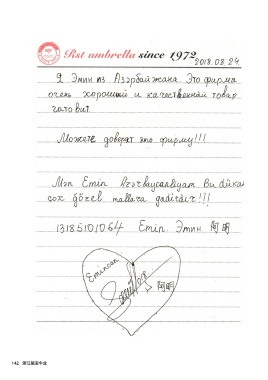 Rst umbrella since 1972
2018.08.24
Я Эмин из Азэрбайжана Это фирма
очень хороший и качественнай товар
готовит.
Можете доверат это фирму!!!
Mən Emin Azərbaycanlıyam. Bu dükan
çox gözəl mallara qadirdir!!!
13185101064 Emin. Эмин 阿明
Emincan
阿明
142